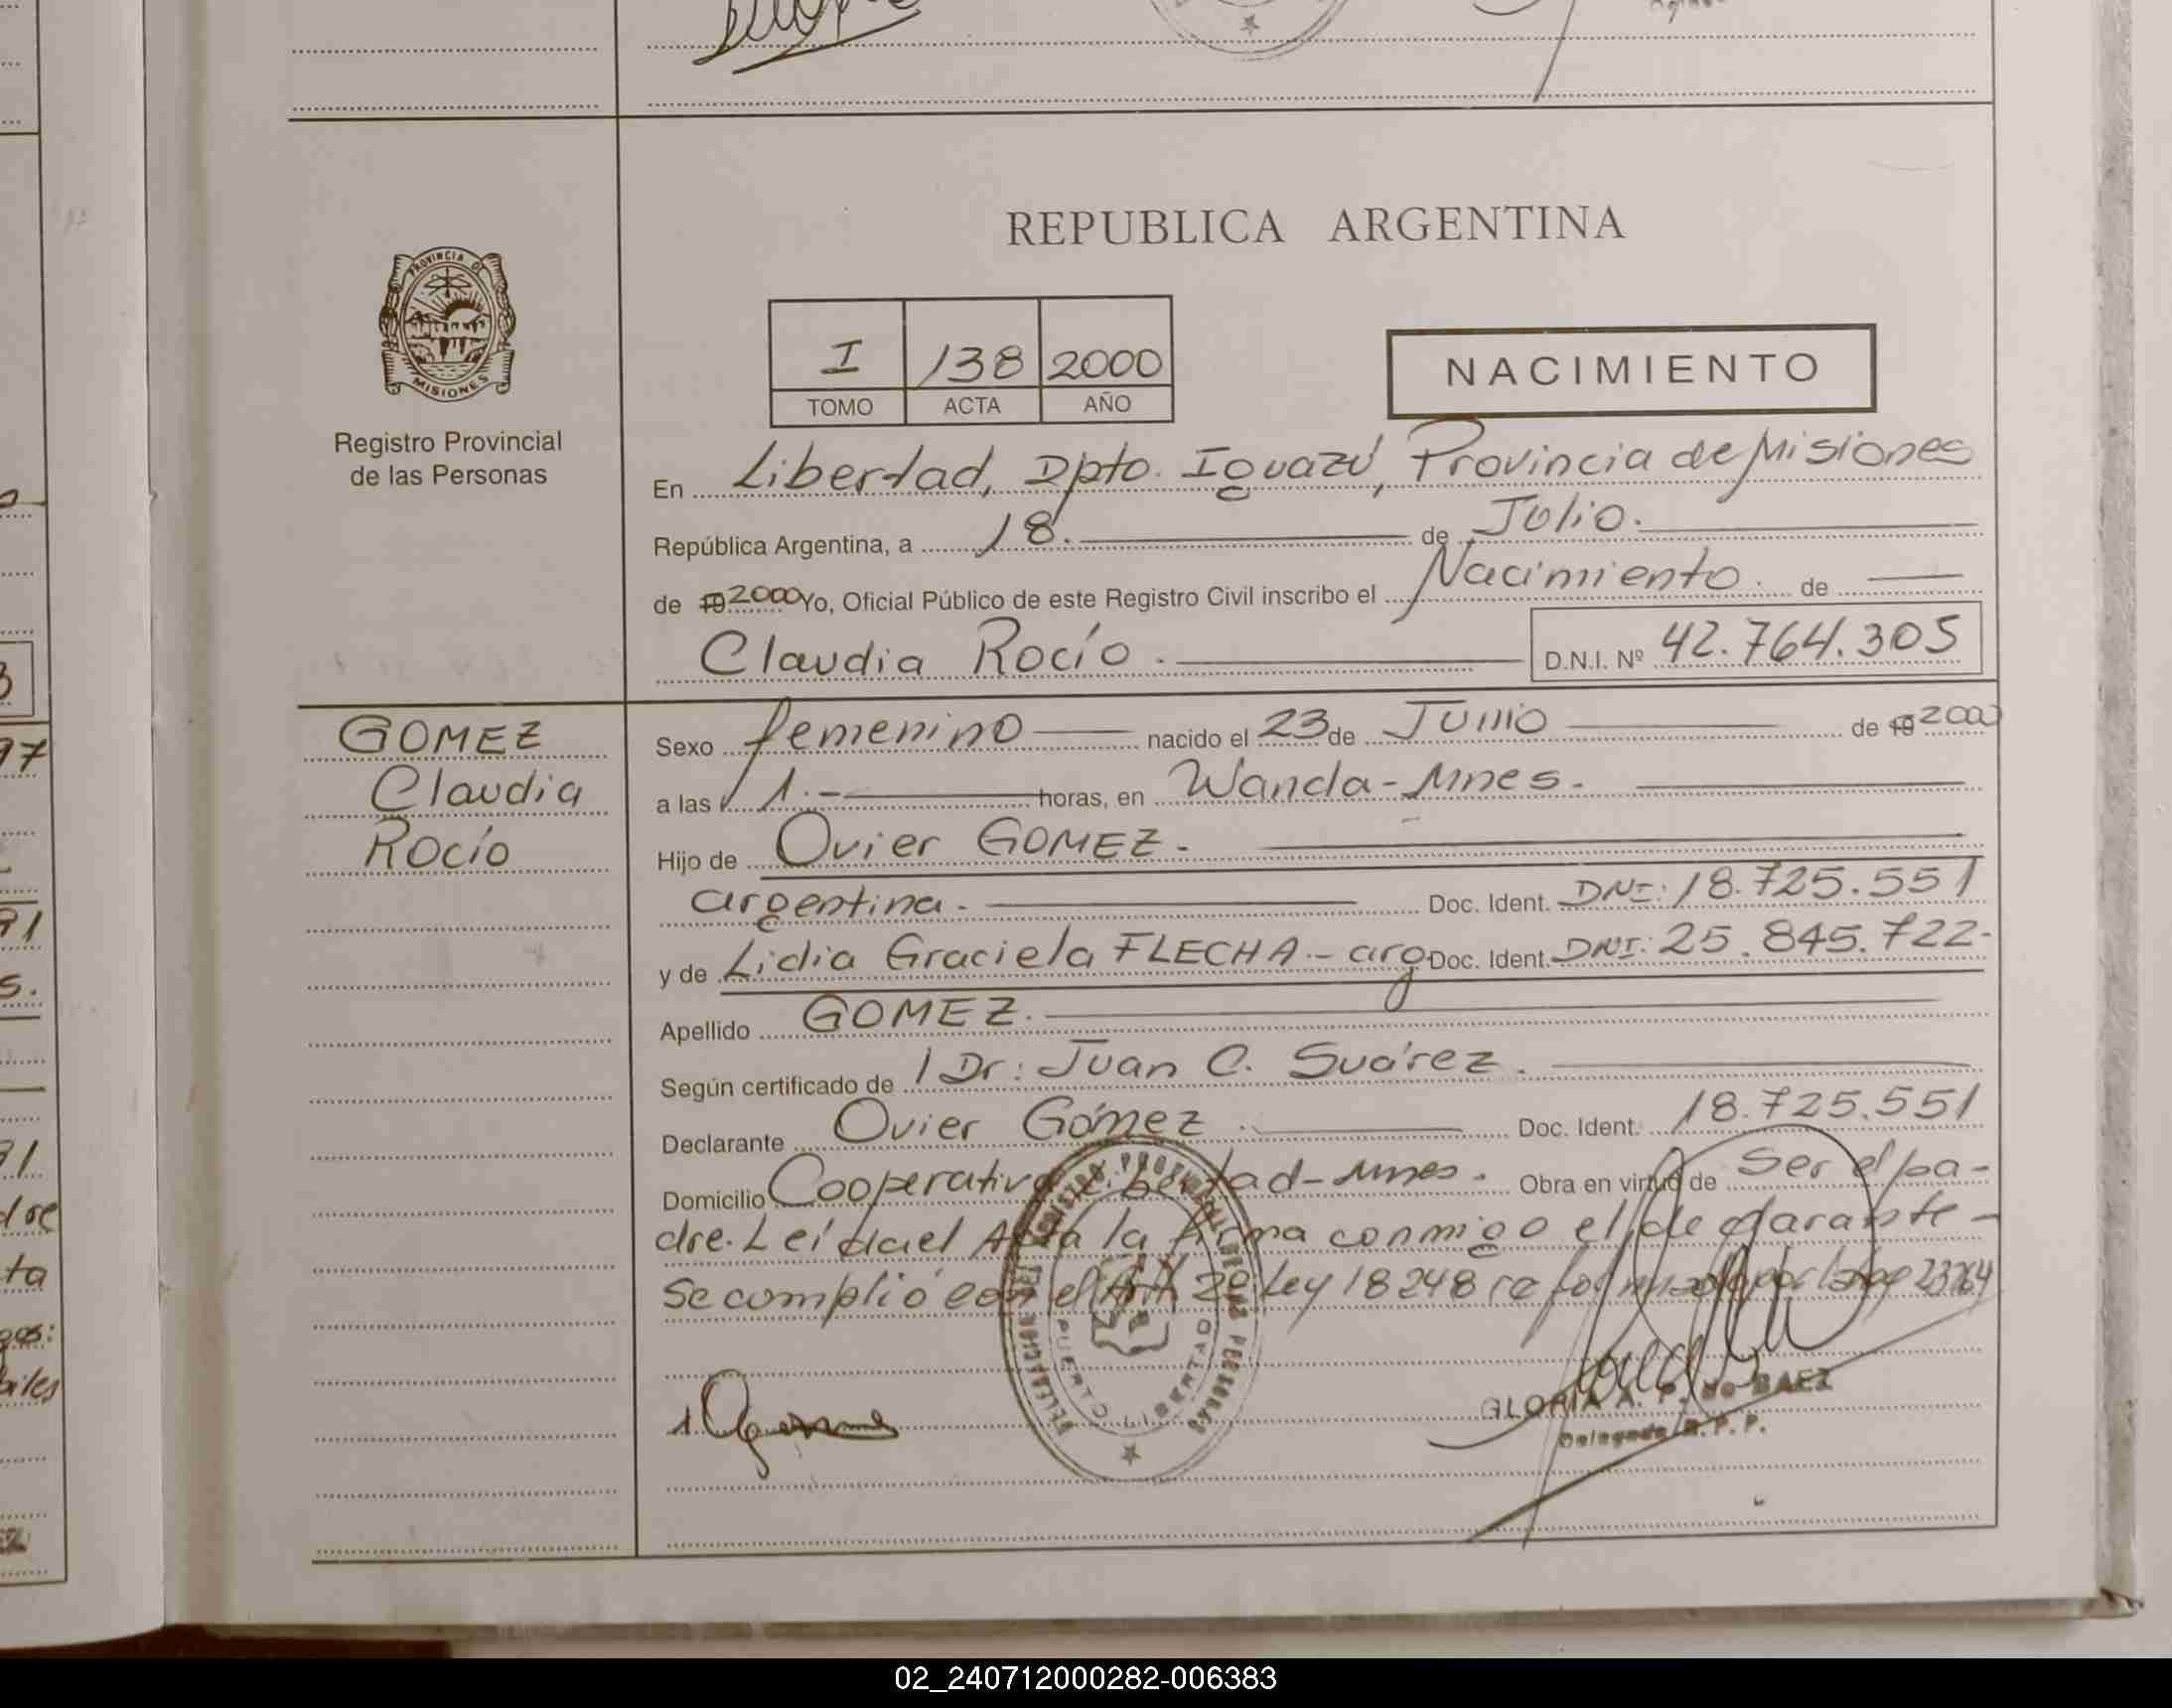 REPUBLICA ARGENTINA
PROVINCIA DE
MISIONES
Registro Provincial
de las Personas
I 138 2000
TOMO ACTA AÑO
NACIMIENTO
En Libertad, Dpto. Iguazú, Provincia de Misiones
República Argentina, a 18. de Julio.
de 19 2000 Yo, Oficial Público de este Registro Civil inscribo el Nacimiento. de
Claudia Rocío. D.N.I. Nº 42.764.305
GOMEZ
Claudia
Rocío
Sexo femenino nacido el 23 de Junio de 19 2000
a las 1.- horas, en Wanda-Mnes.
Hijo de Ovier GOMEZ.
argentina. Doc. Ident. DNI: 18.725.551
y de Lidia Graciela FLECHA.- arg Doc. Ident. DNI: 25.845.722-
Apellido GOMEZ.
Según certificado de Dr: Juan C. Suárez.
Declarante Ovier Gómez. Doc. Ident. 18.725.551
Domicilio Cooperativa Libertad-Mnes. Obra en virtud de Ser el pa-
dre. Leída el Acta la firma conmigo el declarante-
Se complió con el Art. 2º Ley 18248 reformado por la Ley 23264
PUERTO LIBERTAD
GLORIA A. P. de BAEZ
Delegada R.P.P.
02_240712000282-006383